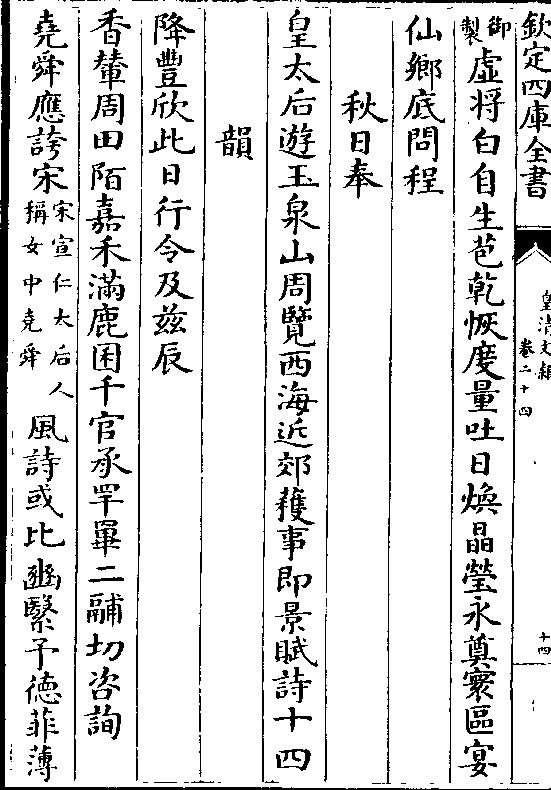 欽定四庫全書
皇清文穎
卷二十四
十四
御製
虛將白自生芭乾恢度量吐日煥晶瑩永奠寰區宴
仙鄉底問程
秋日奉
皇太后遊玉泉山周覽西海近郊穫事即景賦詩十四
韻
降豐欣此日行令及茲辰
香輦周田陌嘉禾滿鹿囷千官承罕罼二鬴切咨詢
堯舜應誇宋宋宣仁太后人稱女中堯舜風詩或比豳繄予德菲薄